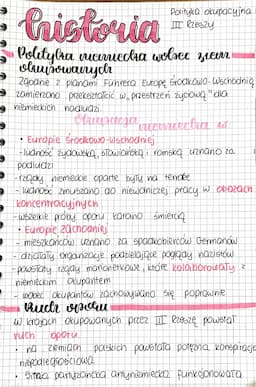 historia
Polityka okupacyjna
III Rzeszy
Polityka niemiecka wobec ziem
okupowanych
Zgodnie z planami Führera Europę Środkowo-Wschodnią
zamierzano przekształcić w „przestrzeń życiową" dla
niemieckich nadludzi.
Okupacja
niemiecka w
• Europie Środkowo-Wschodniej
-ludność żydowską, słowiańską i romską uznano za
podludzi
-rządy niemieckie oparte były na terrorze
-ludność zmuszano do niewolniczej pracy w obozach
koncentracyjnych
-wszelkie próby oporu karano śmiercią
• Europie Zachodniej
- mieszkańców uznano za spadkobierców Germanów
- działały organizacje podzielające poglądy nazistów
-powstały rządy marionetkowe, które kolaborowały z
niemieckim okupantem
-wobec okupantów zachowywano się poprawnie
Ruch oporu
W krajach okupowanych przez III Rzeszę powstał
ruch oporu
• na ziemiach polskich powstała potężna konspiracja
niepodległościowa
• partyzancka antyniemiecka funkcjonowała